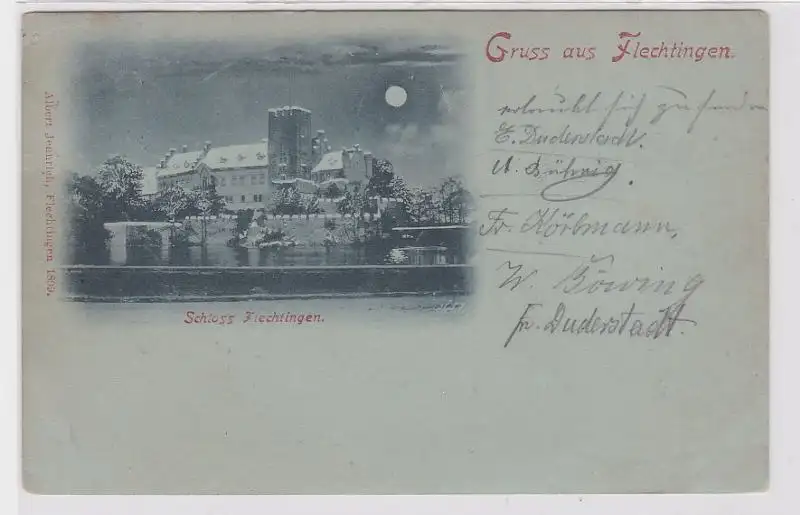 Gruss aus Flechtingen.
erlaubt sich zu senden
E. Duderstadt.
U. Bühring.
Fr. Körbmann,
W. Böwing
Fr. Duderstadt.
Schloss Flechtingen.
Albert Jeahrich, Flechtingen 1899.